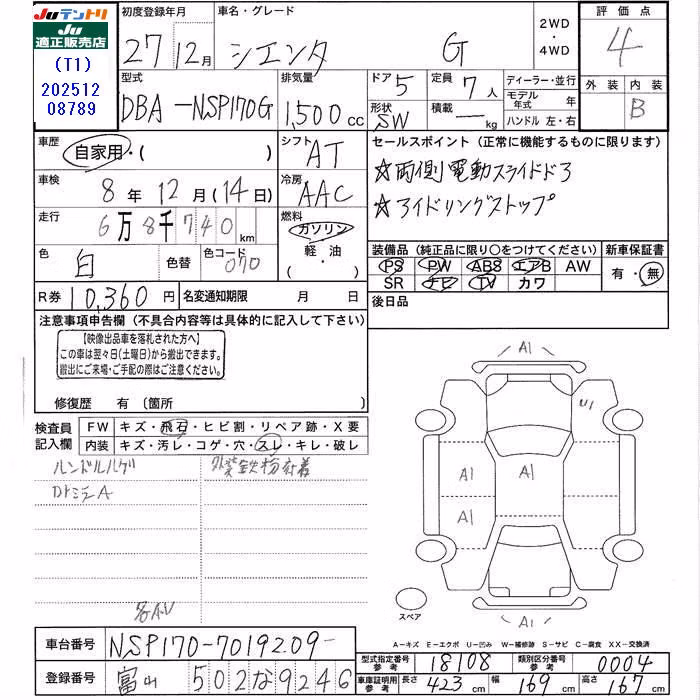 Juテントリ
Ju
適正販売店
(T1)
202512
08789
初度登録年月
27 12月
車名・グレード
シエンタ G
2WD
・
4WD
評価点
4
外装 内装
B
型式
DBA-NSP170G
排気量
1,500 cc
ドア 5
形状 SW
定員 7 人
積載 — kg
ディーラー・並行
モデル年式 年
ハンドル 左・右
車歴
自家用・( )
シフト
AT
車検
8年 12月(14日)
冷房
AAC
走行
6万8千740km
燃料
ガソリン
軽・油
・
色
白
色替
色コード
070
R券 10,360円
名変通知期限 月 日
セールスポイント(正常に機能するものに限ります)
☆両側電動スライドドア
☆アイドリングストップ
装備品(純正品に限り〇をつけてください)
新車保証書
PS PW ABS エアB AW
SR ナビ TV カワ
有・無
後日品
注意事項申告欄(不具合内容等は具体的に記入して下さい)
【映像出品車を落札された方へ】
この車は翌々日(土曜日)から搬出できます。
搬出にご来場・ご手配の際はご注意ください。
修復歴 有 (箇所 )
検査員
記入欄
FW キズ・飛石・ヒビ割・リペア跡・X要
内装 キズ・汚レ・コゲ・穴・スレ・キレ・破レ
ハンドルハゲ
外装鉄粉付着
DドミラーA
A1
U1
A1
A1
A1
A1
スペア
A-キズ E-エクボ U-凹み W-補修跡 S-サビ C-腐食 XX-交換済
車台番号 NSP170-7019209-
登録番号 富山 502な9246
型式指定番号
参考
18108
類別区分番号
参考
0004
車庫証明用
参考
長さ 423 cm
幅 169 cm
高さ 167 cm